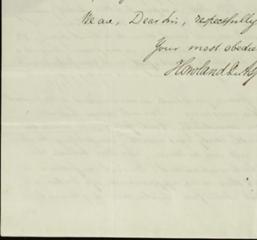 We are, Dear Sir, respectfully
Your most obedie
Howland & As